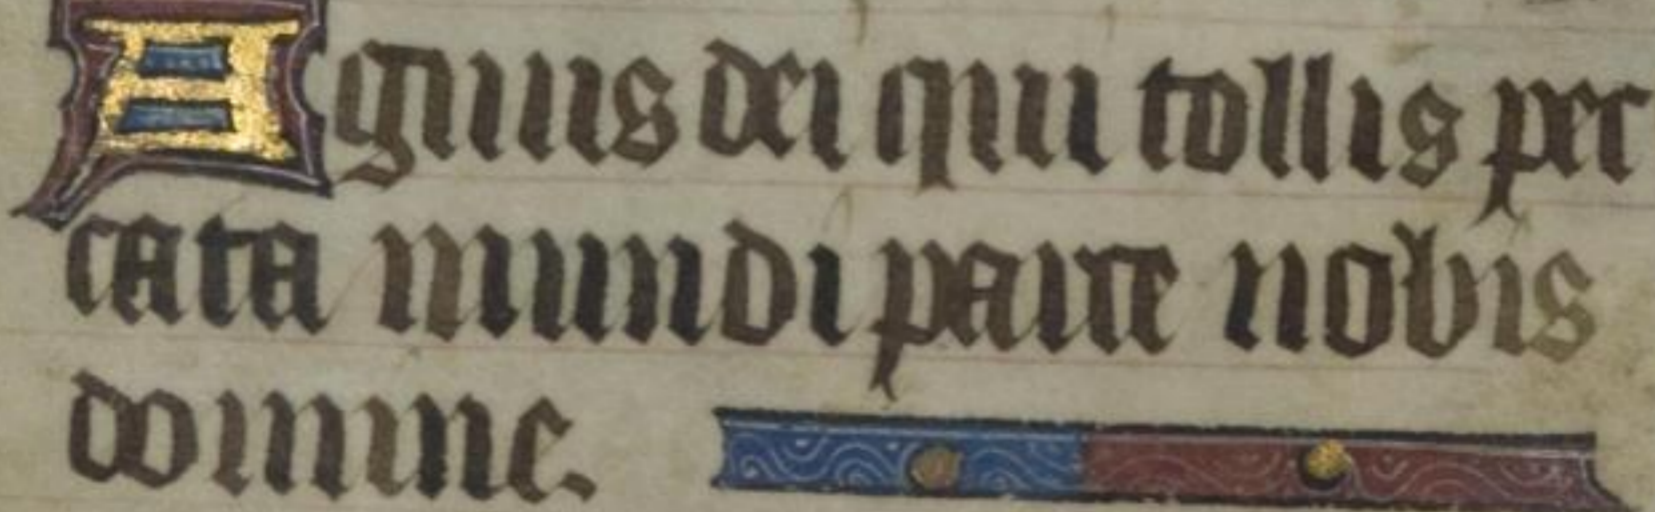 Agnus dei qui tollis pec
cata mundi parce nobis
domine.